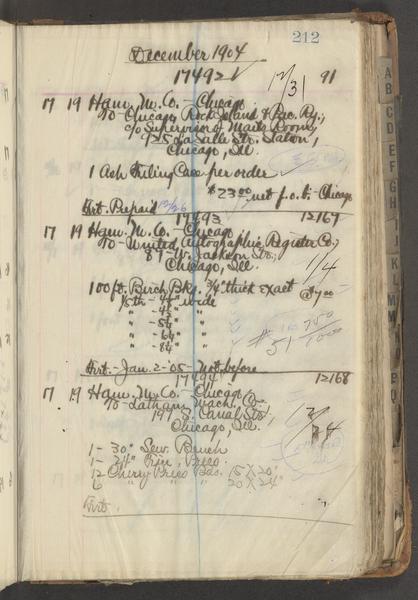 212
December 1904
17492 ✓ 12/31 91
17 19 Ham. M. Co. - Chicago
To - Chicago, Rock Island & Pac. Ry.,
c/o Supervisor of Mails Room,
La Salle Str. Station,
Chicago, Ill.
1 Ash Filing Case per order
$23.00 net f.o.b. - Chicago
Frt. Prepaid
17493 12167
17 19 Ham. M. Co. - Chicago
To - United Autographic Register Co.,
89 - W. Jackson Str.,
Chicago, Ill. 1/4
100 ft. Birch Bkg. 3/4" thick exact $7.00
1/5th - 4 1/4" wide
" - 4 1/2" "
" - 5 1/4" "
" - 6 1/4" "
" - 8 1/4" "
Frt. - Jan. 2 - 05 - Not before
17494 12168
17 19 Ham. M. Co. - Chicago
To - Latham Mach. Co.
197 - S. Canal Str.,
Chicago, Ill. 12/24
1 - 30" Sew. Bench
1 - 24" Press
12 Cherry Press Bds. 15 X 20"
6 " " " 20 X 24"
Frt.
A
B
C
D
E
F
G
H
I
J
K
L
M